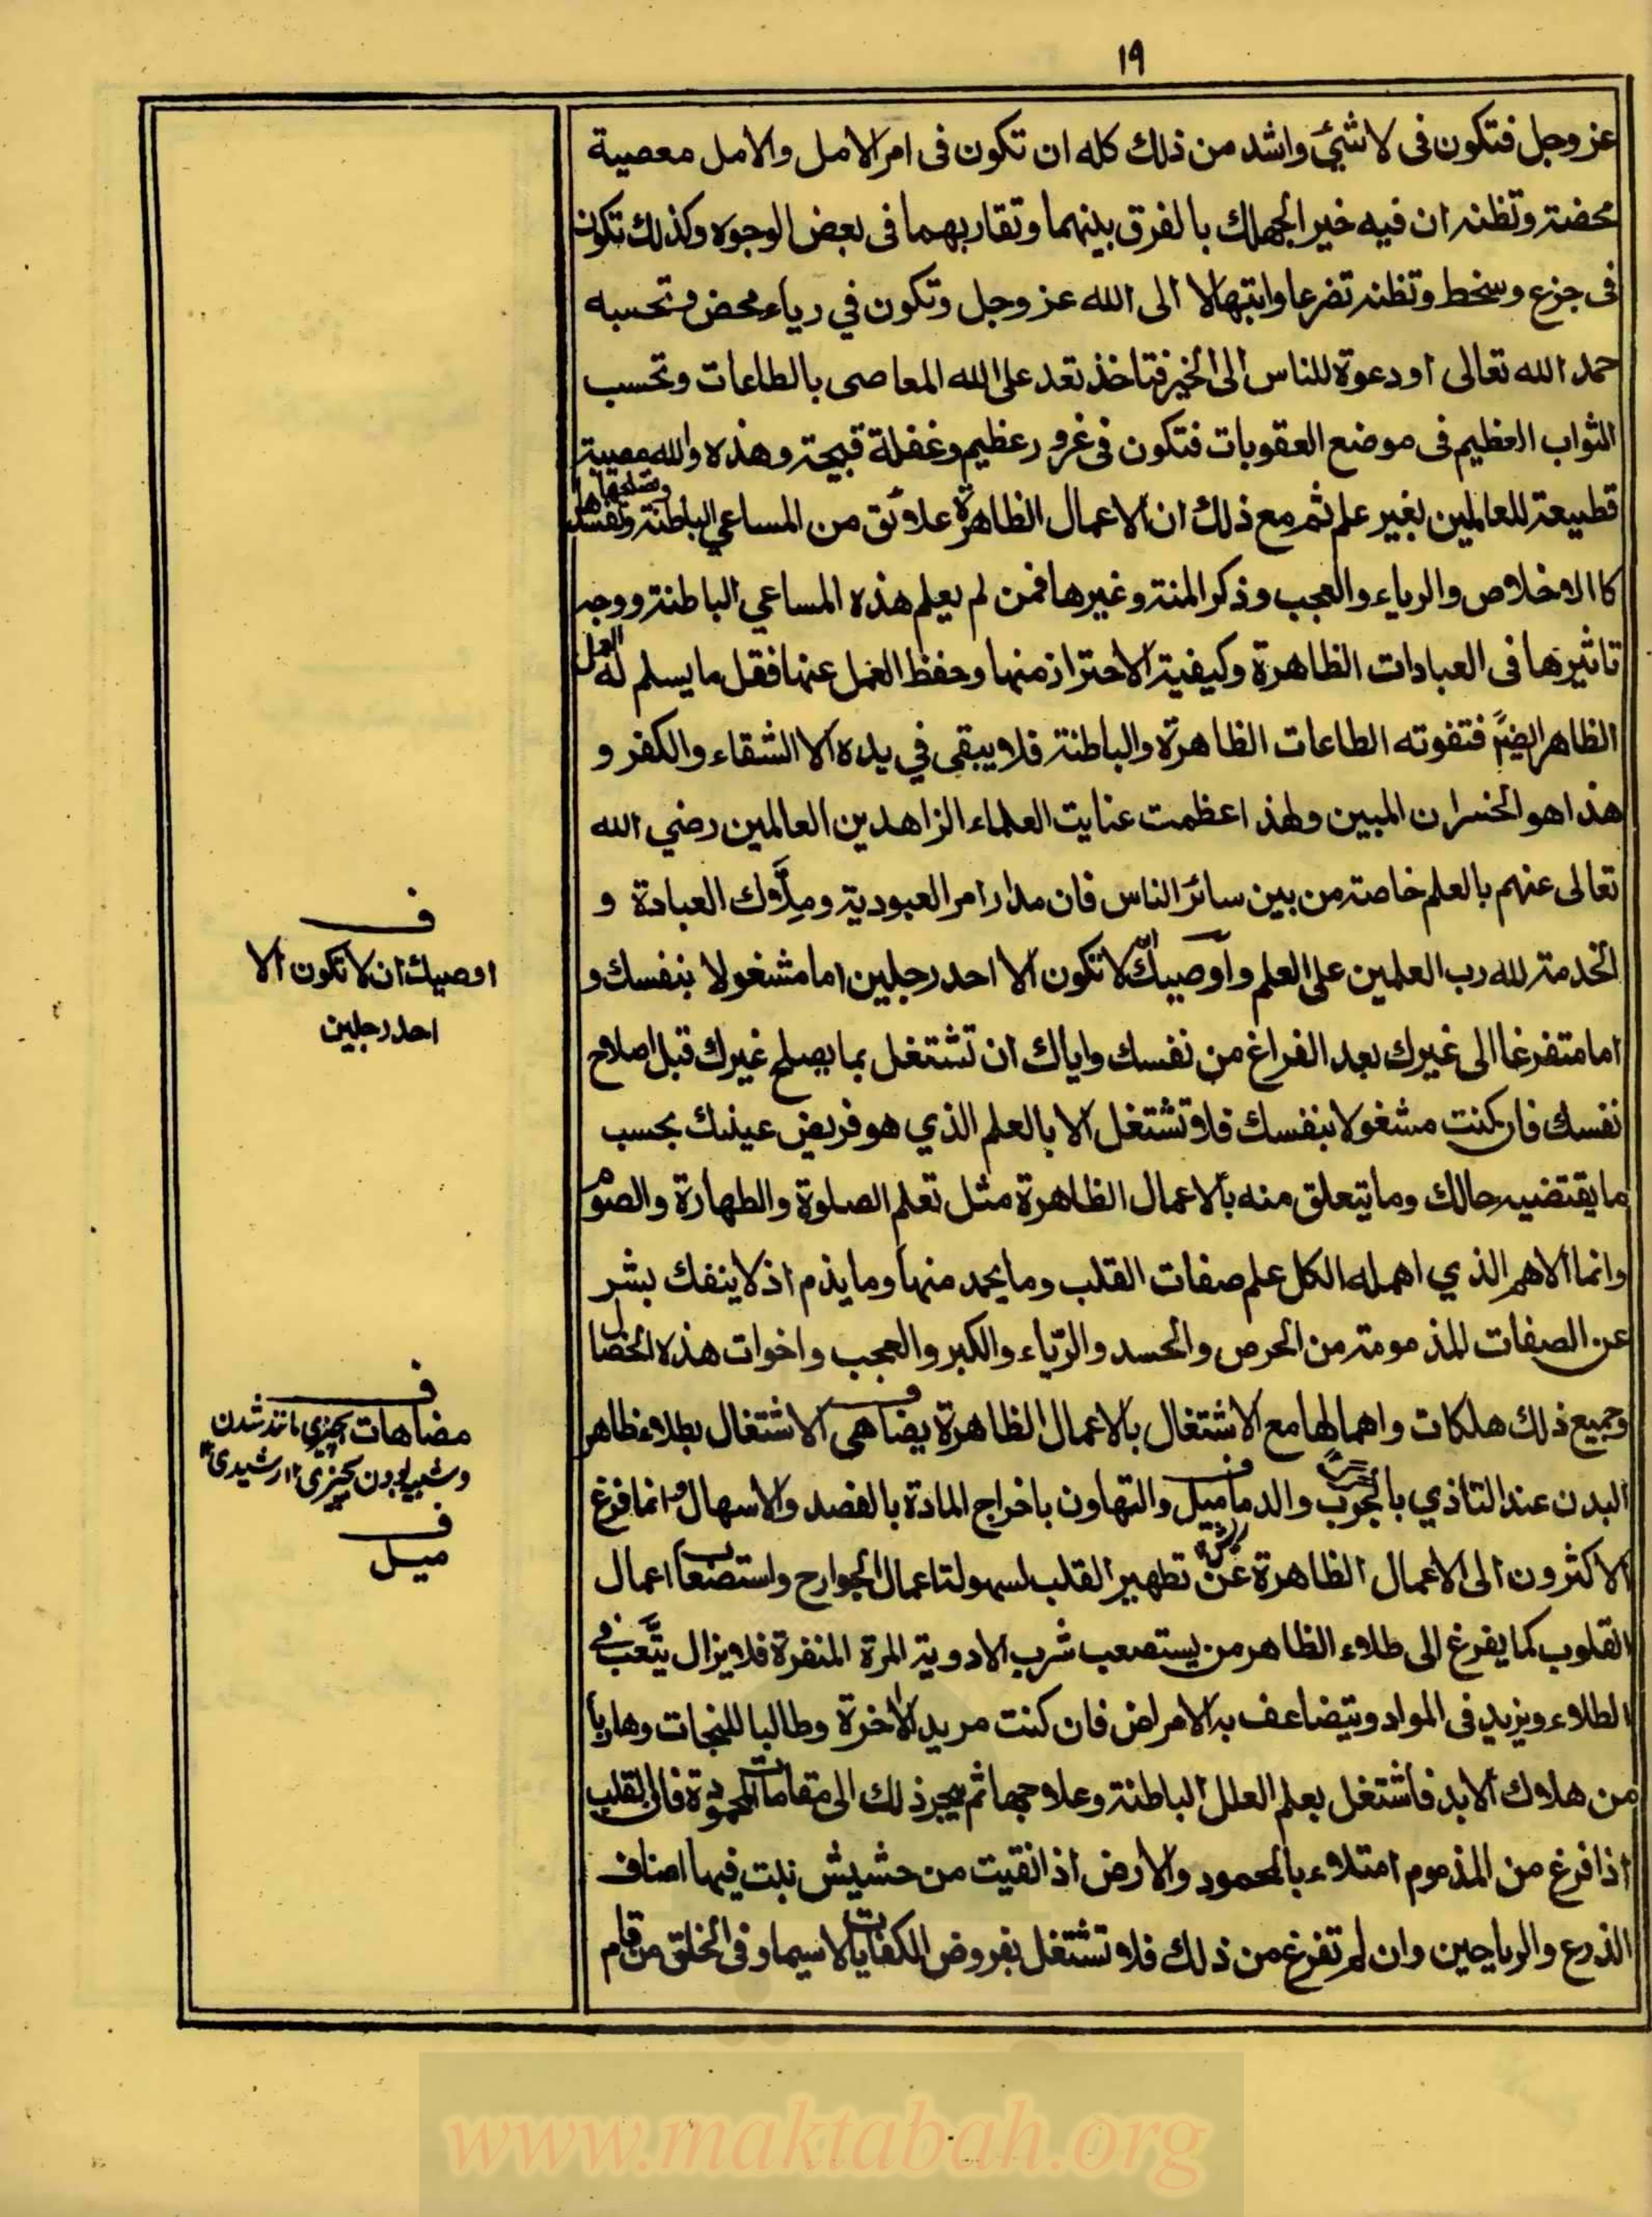 ١٩
عز وجل فتكون فى لاشئ واشد من ذلك كله ان تكون فى امر الامل والامل معصية
محضة وتظنه ان فيه خير الجهلك بالفرق بينهما وتقاربهما فى بعض الوجوه وكذلك تكون
فى جزع وسخط وتظنه تضرعا وابتهالا الى الله عز وجل وتكون في رياء محض وتحسبه
حمد الله تعالى او دعوة للناس الى الخير فتاخذ تعد على الله المعاصى بالطاعات وتحسب
الثواب العظيم فى موضع العقوبات فتكون فى غرور عظيم وغفلة قبيحة وهذه والله مصيبة
قطيعة للعالمين بغير علم ثم مع ذلك ان الاعمال الظاهرة علائق من المساعي الباطنة وتصلحها وتفسدها
كالاخلاص والرياء والعجب وذكر المنة وغيرها فمن لم يعلم هذه المساعي الباطنة ووجه
تاثيرها فى العبادات الظاهرة وكيفية الاحتراز منها وحفظ العمل عنها فقل ما يسلم له العمل
الظاهر ايضًا فتفوته الطاعات الظاهرة والباطنة فلا يبقى في يده الا الشقاء والكفر و
هذا هو الخسران المبين ولهذ اعظمت عنايت العلماء الزاهدين العالمين رضي الله
تعالى عنهم بالعلم خاصة من بين سائر الناس فان مدار امر العبودية وملاك العبادة و
الخدمة لله رب العلمين على العلم واوصيك ان لا تكون الا احد رجلين اما مشغولا بنفسك و
اما متفرغا الى غيرك بعد الفراغ من نفسك واياك ان تشتغل بما يصلح غيرك قبل اصلاح
نفسك فان كنت مشغولا بنفسك فلا تشتغل الا بالعلم الذي هو فريض عينك بحسب
ما يقتضيه حالك وما يتعلق منه بالاعمال الظاهرة مثل تعلم الصلوة والطهارة والصوم
وانما الاهم الذي اهمله الكل علم صفات القلب وما يحمد منها وما يذم اذ لا ينفك بشر
عن الصفات المذمومة من الحرص والحسد والرّياء والكبر والعجب واخوات هذه الخصال
وجميع ذلك هلكات واهمالها مع الاشتغال بالاعمال الظاهرة يضاهى الاشتغال بطلاء ظاهر
البدن عند التاذي بالجرب والدماميل والتهاون باخراج المادة بالفصد والاسهال وانما فرغ
الاكثرون الى الاعمال الظاهرة عن تطهير القلب لسهولت اعمال الجوارح واستصعاب اعمال
القلوب كما يفرغ الى طلاء الظاهر من يستصعب شرب الادوية المرة المنفرة فلا يزال يتعب في
الطلاء ويزيد فى المواد ويتضاعف به الامراض فان كنت مريد الاخرة وطالبا للنجات وهاربا
من هلاك الابد فاشتغل بعلم العلل الباطنة وعلاجها ثم يجر ذلك الى مقامات المحمودة فان القلب
اذا فرغ من المذموم امتلاء بالمحمود والارض اذا نقيت من حشيش نبت فيها اصناف
الذرع والرياحين وان لم تفرغ من ذلك فلا تشتغل بفروض الكفايات لاسيما وفى الخلق من قام
ف
اوصيك ان لا تكون الا
احد رجلين
ف
مضاهات بچيزى مانند شدن
و شبيه بودن بچيزى ١٢ رشيدى
ف
ميل
www.maktabah.org